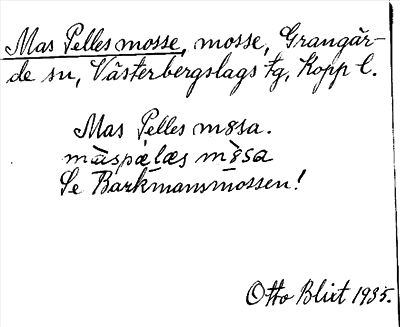 Mas Pelles mosse, mosse, Grangär-
de sn, Västerbergslags tg, Kopp l.
Mas Pelles mosa.
màspælæs mòsa
Se Barkmansmossen!
Otto Blixt 1935.